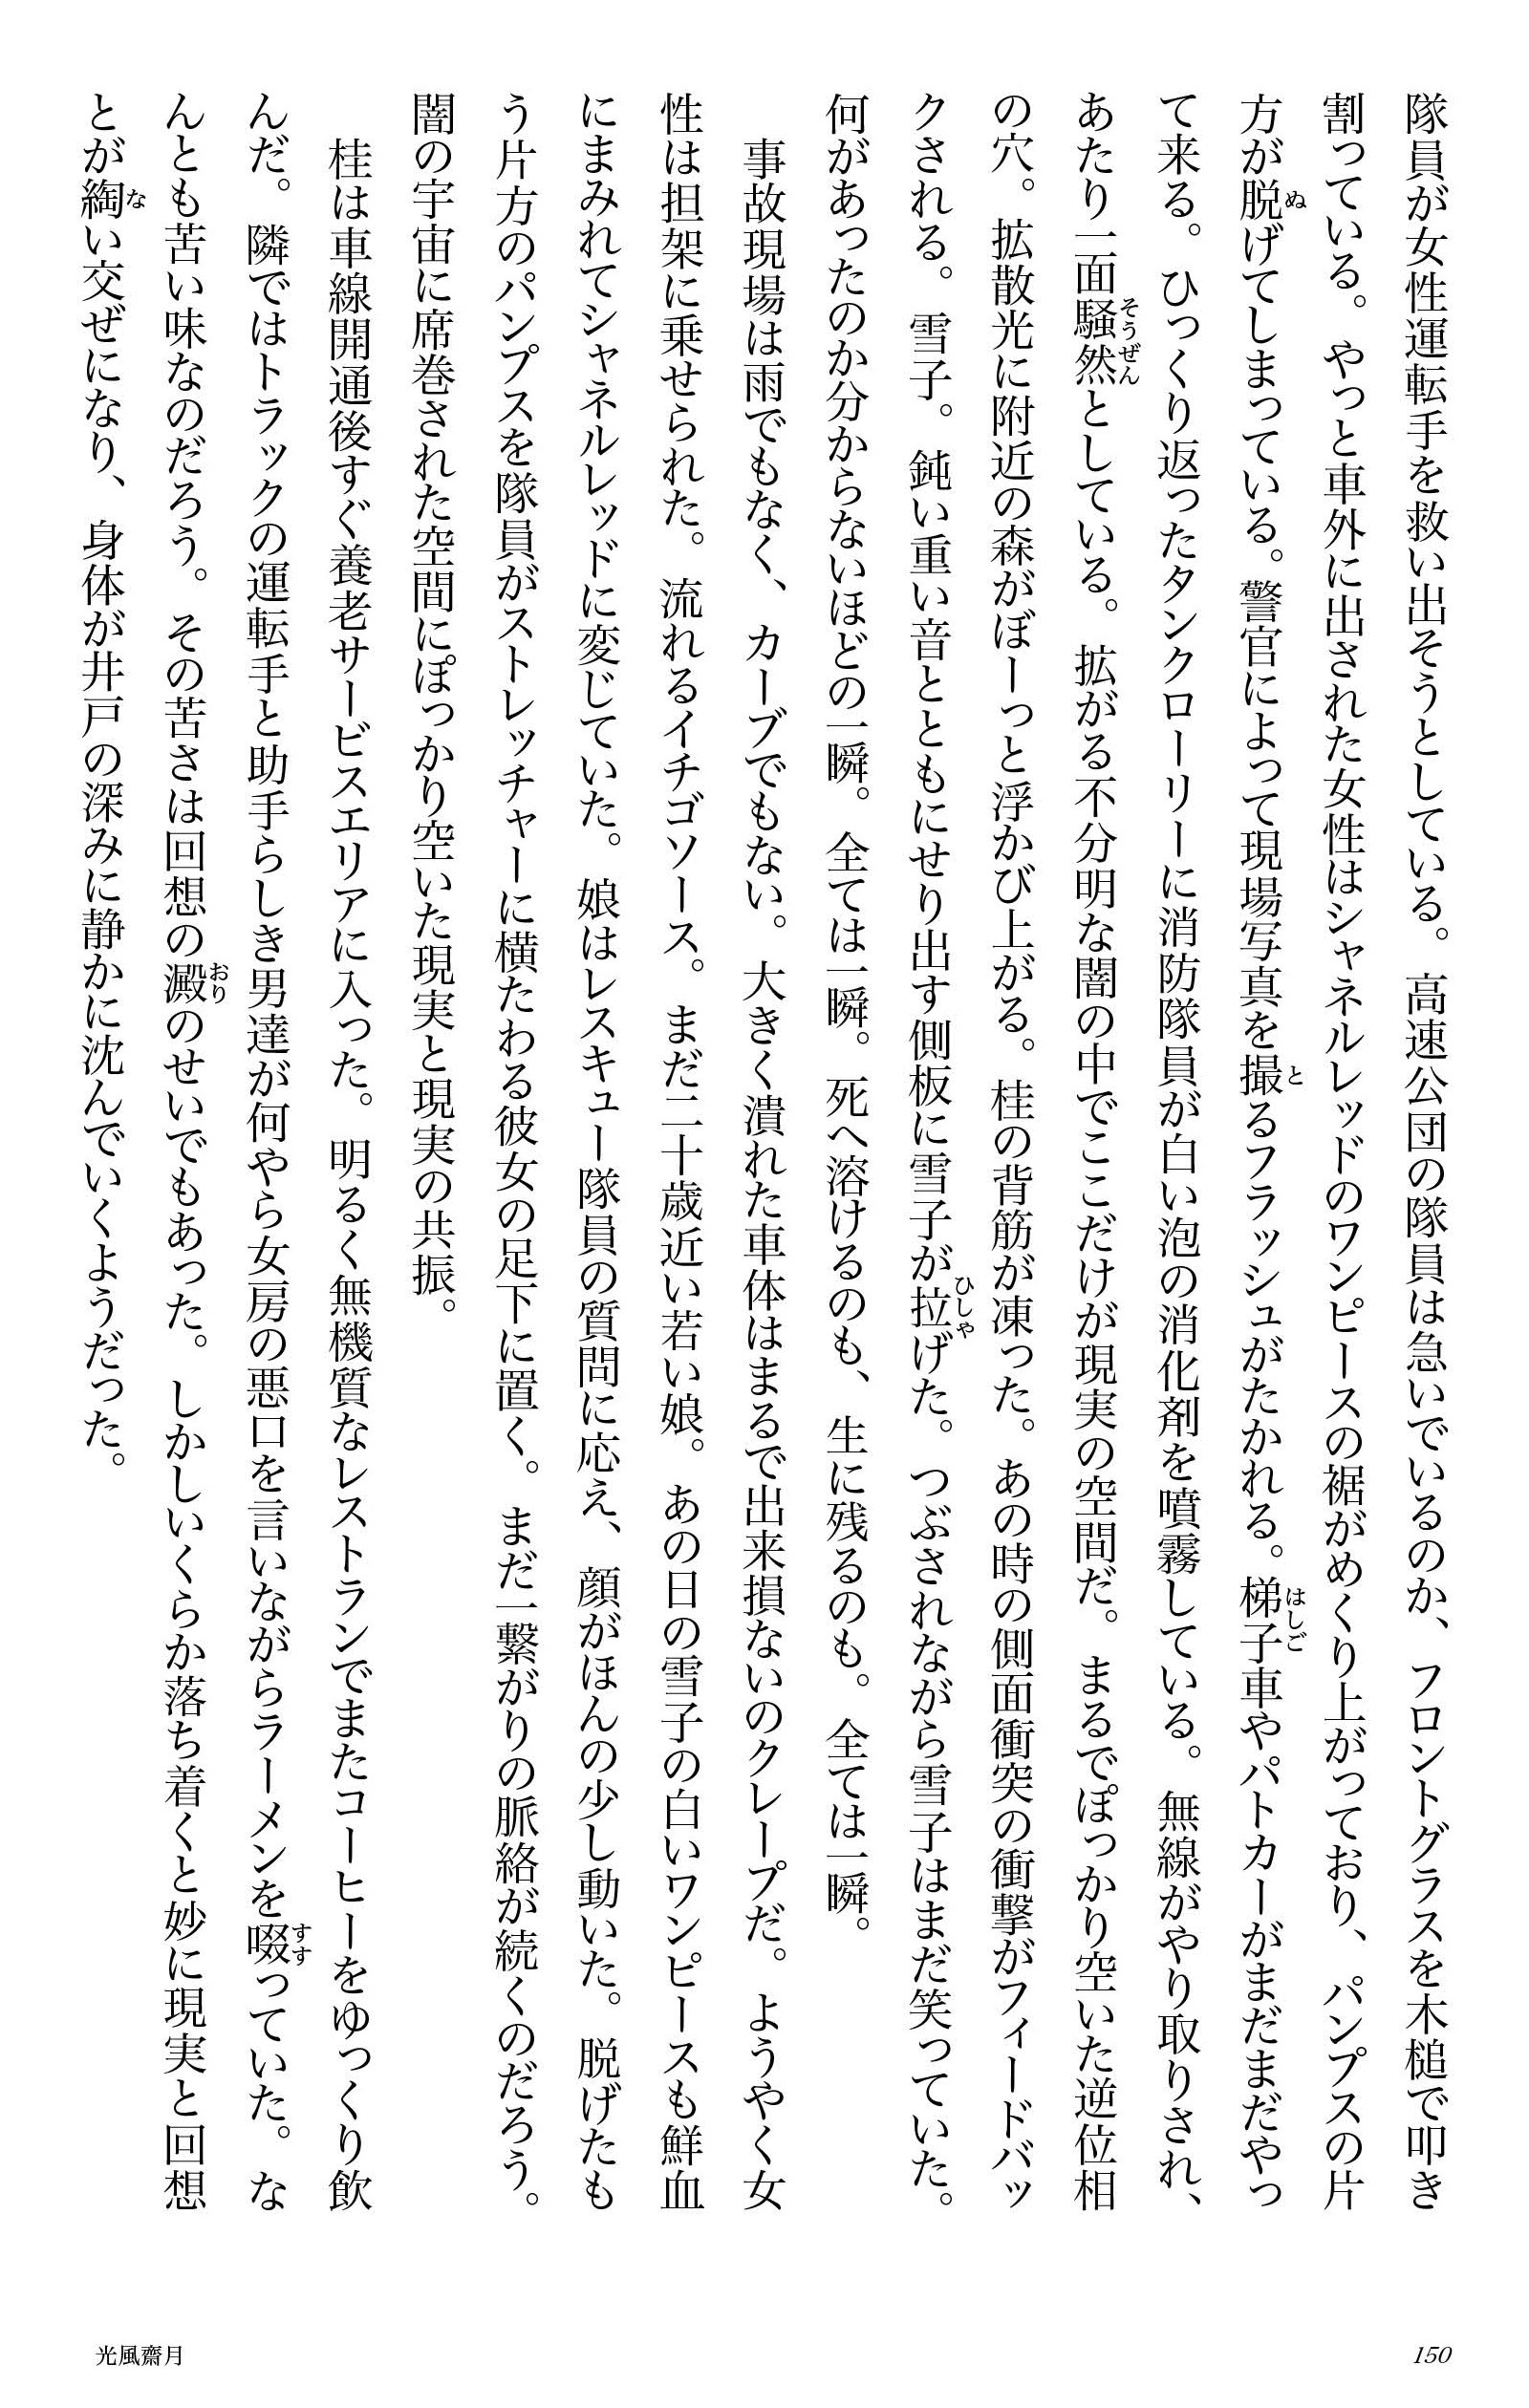 隊員が女性運転手を救い出そうとしている。高速公団の隊員は急いでいるのか、フロントグラスを木槌で叩き
割っている。やっと車外に出された女性はシャネルレッドのワンピースの裾がめくり上がっており、パンプスの片
方が脱げてしまっている。警官によって現場写真を撮るフラッシュがたかれる。梯子車やパトカーがまだまだやっ
て来る。ひっくり返ったタンクローリーに消防隊員が白い泡の消化剤を噴霧している。無線がやり取りされ、
あたり一面騒然としている。拡がる不分明な闇の中でここだけが現実の空間だ。まるでぽっかり空いた逆位相
の穴。拡散光に附近の森がぼーっと浮かび上がる。桂の背筋が凍った。あの時の側面衝突の衝撃がフィードバッ
クされる。雪子。鈍い重い音とともにせり出す側板に雪子が拉げた。つぶされながら雪子はまだ笑っていた。
何があったのか分からないほどの一瞬。全ては一瞬。死へ溶けるのも、生に残るのも。全ては一瞬。
事故現場は雨でもなく、カーブでもない。大きく潰れた車体はまるで出来損ないのクレープだ。ようやく女
性は担架に乗せられた。流れるイチゴソース。まだ二十歳近い若い娘。あの日の雪子の白いワンピースも鮮血
にまみれてシャネルレッドに変じていた。娘はレスキュー隊員の質問に応え、顔がほんの少し動いた。脱げたも
う片方のパンプスを隊員がストレッチャーに横たわる彼女の足下に置く。まだ一繋がりの脈絡が続くのだろう。
闇の宇宙に席巻された空間にぽっかり空いた現実と現実の共振。
桂は車線開通後すぐ養老サービスエリアに入った。明るく無機質なレストランでまたコーヒーをゆっくり飲
んだ。隣ではトラックの運転手と助手らしき男達が何やら女房の悪口を言いながらラーメンを啜っていた。な
んとも苦い味なのだろう。その苦さは回想の澱のせいでもあった。しかしいくらか落ち着くと妙に現実と回想
とが綯い交ぜになり、身体が井戸の深みに静かに沈んでいくようだった。
光風齋月
150